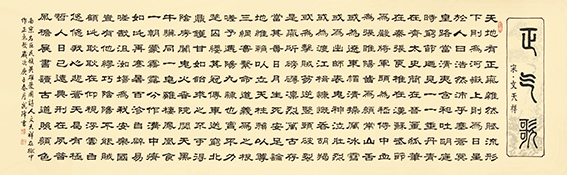 正气歌
宋 文天祥
天地有正氣雜然賦流形
下則為河嶽上則為日星
於人曰浩然沛乎塞蒼冥
皇路當清夷含和吐明庭
時窮節乃見一一垂丹青
在齊太史簡在晉董狐筆
在秦張良椎在漢蘇武節
為嚴將軍頭為嵇侍中血
為張睢陽齒為顏常山舌
或為遼東帽清操厲冰雪
或為出師表鬼神泣壯烈
或為渡江楫慷慨吞胡羯
或為擊賊笏逆豎頭破裂
是氣所磅礴凜烈萬古存
當其貫日月生死安足論
地維賴以立天柱賴以尊
三綱實繫命道義為之根
嗟予遘陽九隸也實不力
楚囚纓其冠傳車送窮北
鼎鑊甘如飴求之不可得
陰房闃鬼火春院閟天黑
牛驥同一皂雞棲鳳凰食
一朝蒙霧露分作溝中瘠
如此再寒暑百沴自辟易
嗟哉沮洳場為我安樂國
豈有他繆巧陰陽不能賊
顧此耿耿在仰視浮雲白
悠悠我心悲蒼天曷有極
哲人日已遠典刑在夙昔
風簷展書讀古道照顏色
南宋名臣民族英雄愛國詩人文天祥在獄中
作正氣歌 歲次庚子春月